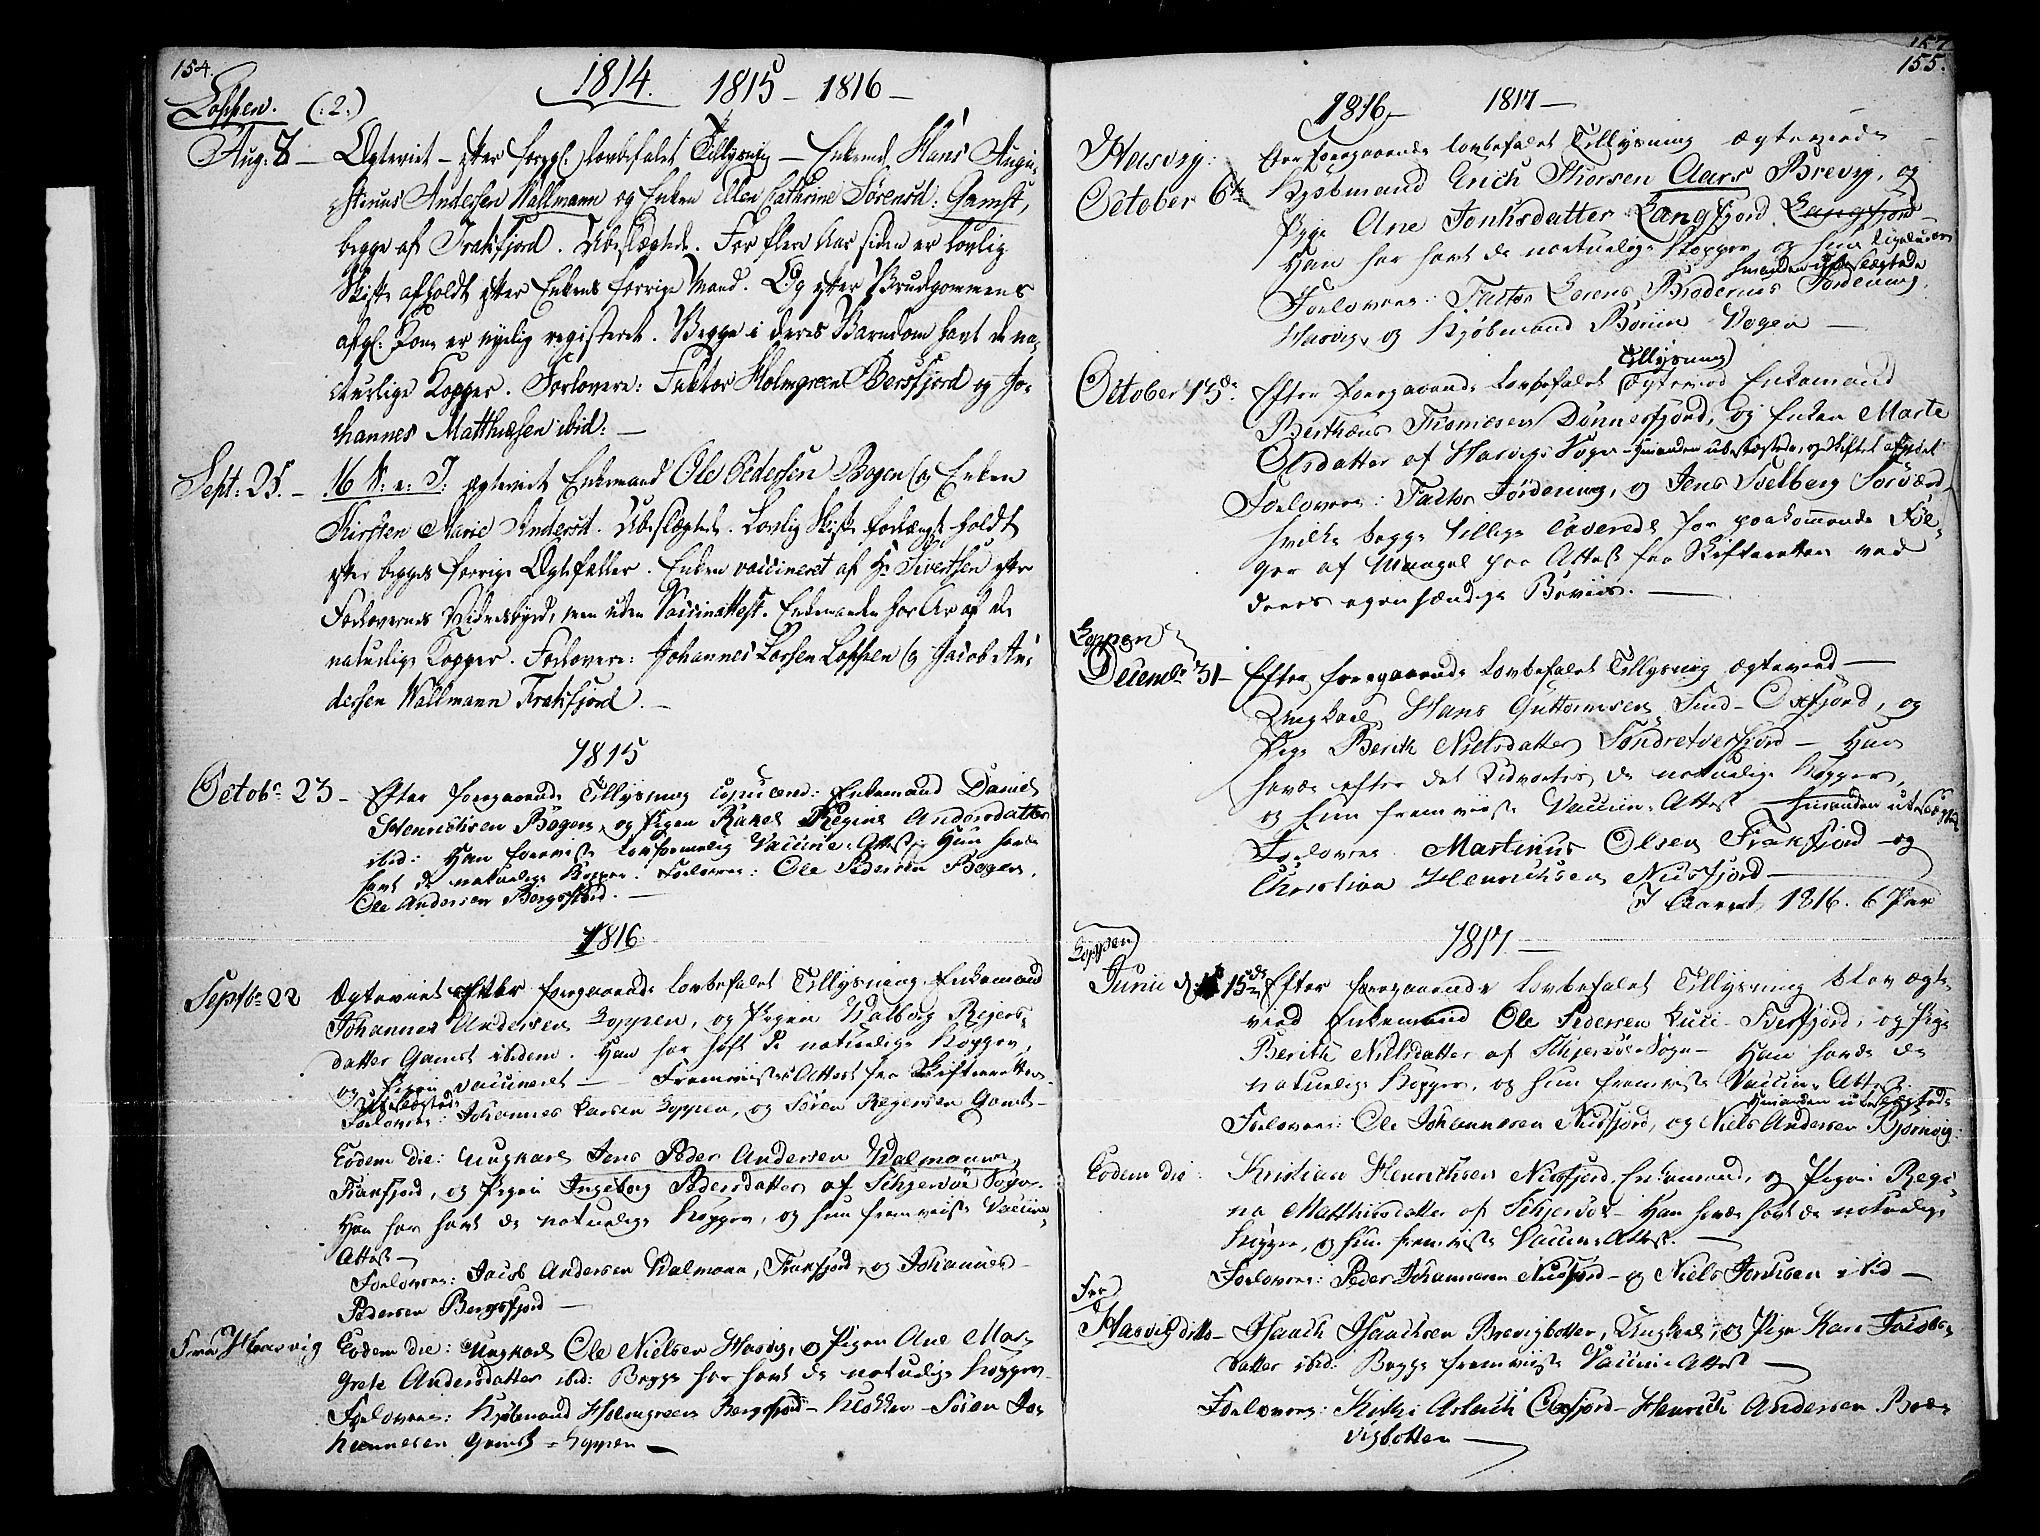 154.
1814. 1815 - 1816 -
Loppen. (:2:)
Aug: 8 - Ægteviet - efter forrgl. lovbefalet Tillysnig - Enkemd. Hans Augu-
stinus Andersen Wallmann og Enken Ellen Cathrine Sørensd: Gamst,
begge af Frakfjord. Ubeslægtede. For flere Aar siden er lovlig
Skifte afholdt efter Enkens forrige Mand. Og efter Brudgommens
afgl. Kone er nylig registeret. Begge i deres Barndom havt de na-
turlige Kopper. Forlovere: Faktor Holmgreen Bersfjord og Jo-
hannes Matthiesen ibid: -
Sept: 25. - 16 S: e: T: ægteviet Enkemand Ole Pedersen Bogen og Enken
Kirsten Marie Andersd. Ubeslægtede. Lovlig Skifte forlængst holdt
efter begges forrige Ægtefæller. Enken vaccineret af Hr Sivertsen efter
Forlovernes Vidnesbyrd, men uden Vaccinattest. Enkemanden har Ar af de
naturlige Kopper. Forlovere: Johannes Larsen Loppen og Jacob An-
dersen Wallmann Frakfjord. -
1815
Octobr 23 - Efter foregaaende Tillysning copulered: Enkemand Daniel
Henrichsen Bogen, og Pigen Rakel Regine Andersdatter
ibid: Han foreviste lovformelig Vaccine-Attest, Hun havde
havt de naturlige Kopper. Forlovere: Ole Pedersen Bogen,
Ole Andersen Bergsfjord. -
1816
Septbr 22 Ægteviet efter foregaaende lovbefalet Tillysning Enkemand
Johannes Andersen Loppen, og Pigen Walborg Regers-
datter Gamst ibidem. Han har haft de naturlige Kopper,
og Pigen vaccineret - Fremvistes Attest fra Skifteretten.
Ubeslægtede
Forlovere: Johannes Larsen Loppen, og Søren Regersen Gamst -
Eodem die: Ungkarl Jens Peder Andersen Walmann,
Frakfjord, og Pigen Ingeborg Pedersdatter af Schjervøe Sogn.
Han har havt de naturlige Kopper, og hun fremviiste Vaccine
Attest -
Forlovere: Jacob Andersen Walmann, Frakfjord, og Johannes
Pedersen Bergsfjord -
Fra Hasvig Eodem die: Ungkarl Ole Nielsen Hasvig, og Pigen Ane Mar-
grete Andersdatter ibid: Begge har havt de naturlige Kopper
Forlovere: Kjøbmand Holmgreen Bergsfjord - Klokker - Søren Jo-
hannesen Gamst - Loppen -
157
155.
1816 - 1817 -
Hasvig: Efter foregaaende lovbefalet Tillysning Ægteviede
October 6te Kjøbmand Erich Thorsen Aars Brevig, og
Pige Ane Jonhsdatter Langfjord Langfjord -
Han har havt de naturlige Kopper og hun ligeledes
hinanden ubeslægtede
Forlovere: Factor Lorens Brodernis Jordening
Hasvig, og Kjøbmand Vogen -
Tillysning
October 13de Efter foregaaende lovbefalet ægteviet Enkemand
Berthæus Thomesen Dønnesfjord, og Enken Marte
Olsdatter af Hasvigs Sogn - hinanden ubeslægtede, og Skiftet afgjort
Forlovere: Factor Jordening, og Jens Soelberg Sørværd
hvilke begge tillige caverede for paakommende Føl-
ger af Mangel paa Attest fra Skifteretten ved
deres egenhændige Beviis. -
Loppen
Decembr 31 - Efter foregaaende lovbefalet Tillysning ægteviet -
Ungkarl Hans Guttormsen Sund - Oxfjord, og
Pige Berith Nielsdatter Søndretverfjord - Han
havde efter det de naturlige Kopper,
og hun fremviiste Vaccine-Attest - hinanden ubeslægtede
Forlovere Martinus Olsen Frakfjord - og
Christian Henrichsen Nuvsfjord -
I Aaret 1816. 6 Par
1817 -
Loppen
Junii d: 15de Efter foregaaende lovbefalet Tillysning blev ægte-
vied Enkemand Ole Pedersen Luci - Sverfjord, og Pige
Berith Nielsdatter af Schjervøe Sogn - Han havde de
naturlige Kopper, og hun fremviste Vaccine Attest
hinanden ubeslægtede
Forlovere: Ole Johannesen Nusfjord, og Niels Andersen Bjørnvig:
Eodem die: Kristian Henrichsen Nusfjord, Enkemand, og Pigen Regi-
na Matthisdatter af Schjervøe - Han havde havt de naturlige
Kopper, og hun fremviste Vaccine Attest. -
Forlovere: Peder Johannesen Nusfjord - og Niels Jonhsen ibid -
Fra
Hasvig ditto - Isaach Isaachsen Brevigbotten, Ungkarl, og Pige Karen Jacobs-
datter ibid: Begge fremviiste Vaccine-Attest -
Forlovere: Arlach Oxfjord - Henrich Andersen Bre-
vigbotten -